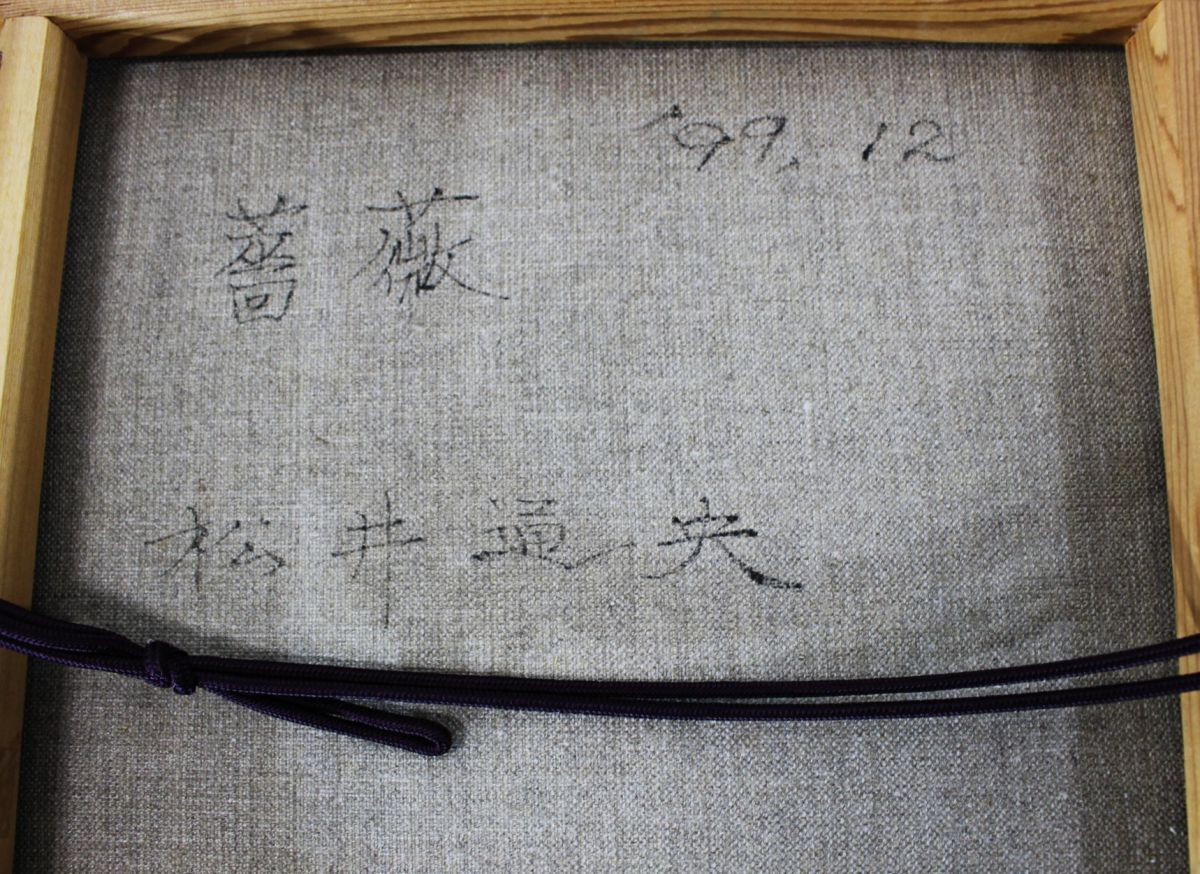 '99. 12
薔薇
松井通央